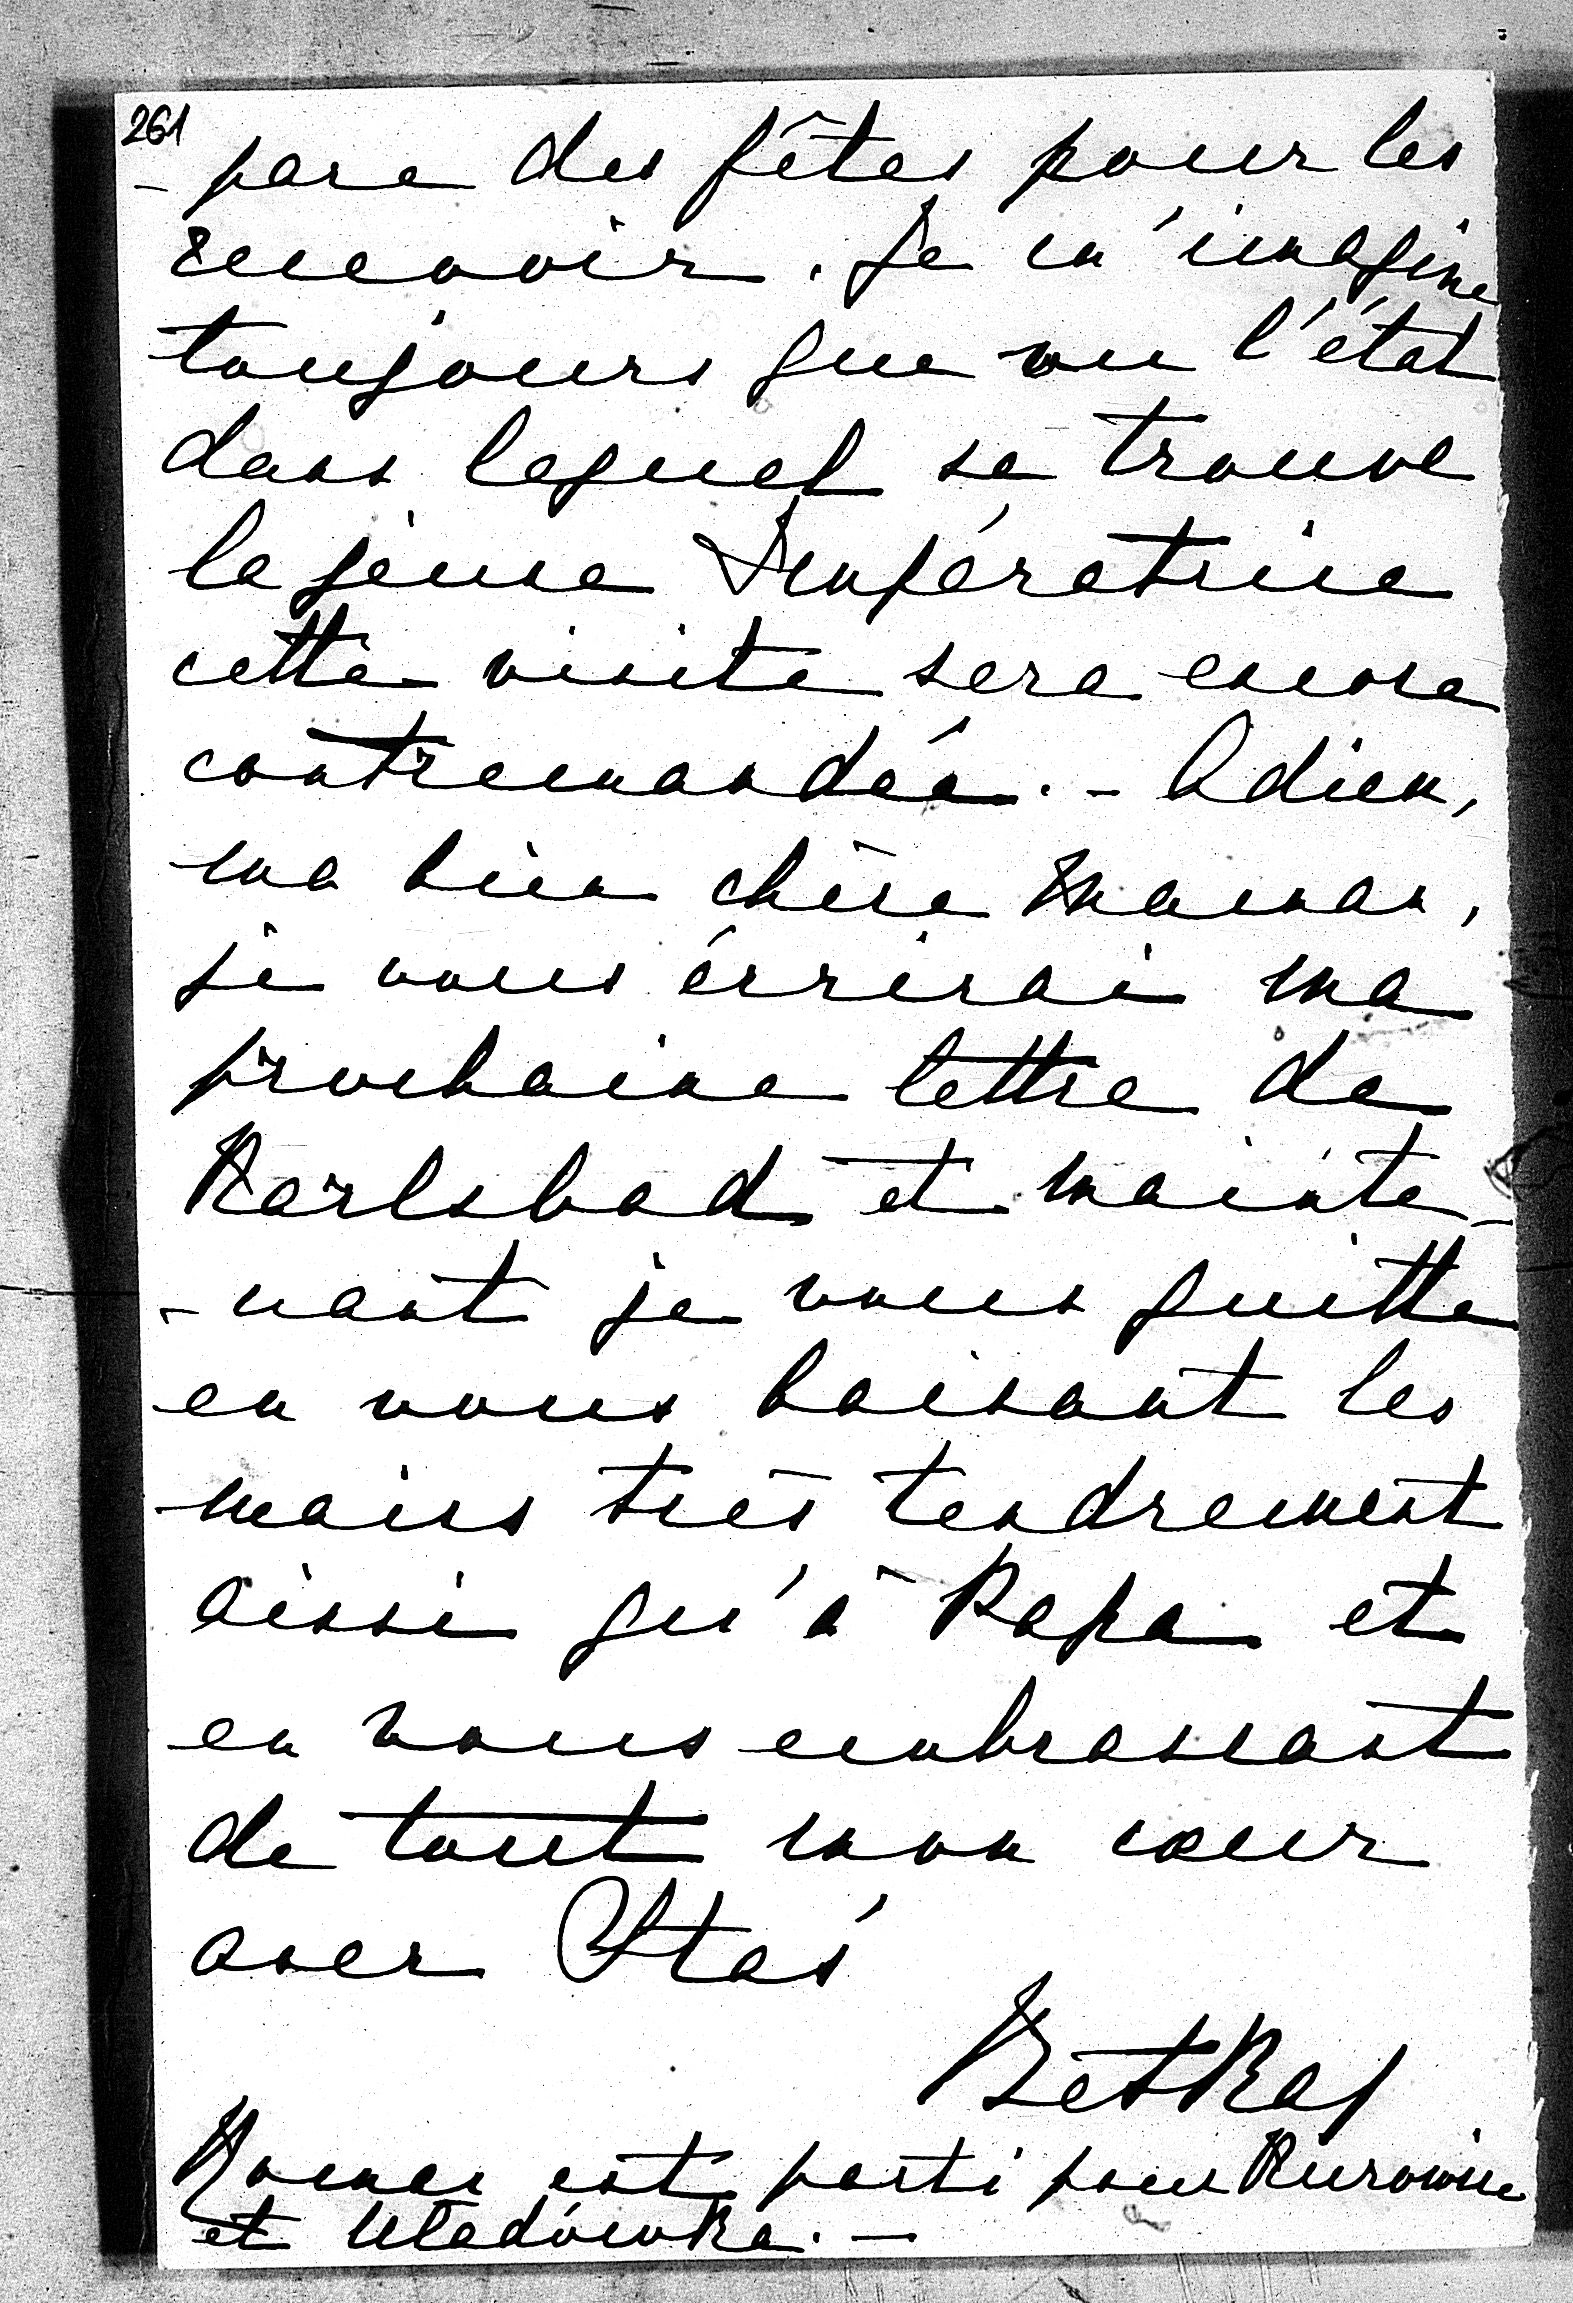 261
- pare des fêtes pour les
recevoir. Je m'imagine
toujours que vu l'état
dans lequel se trouve
la jeune Impératrice
cette visite sera encore
contremandée. - Adieu,
ma bien chère Maman,
je vous écrirai ma
prochaine lettre de
Karlsbad et mainte-
- nant je vous quitte
en vous baisant les
mains très tendrement
aissi qu'à Papa et
en vous embrassant
de tout mon cœur
avec Staś
Betka
Roman est parti pour
et Uładówka. -